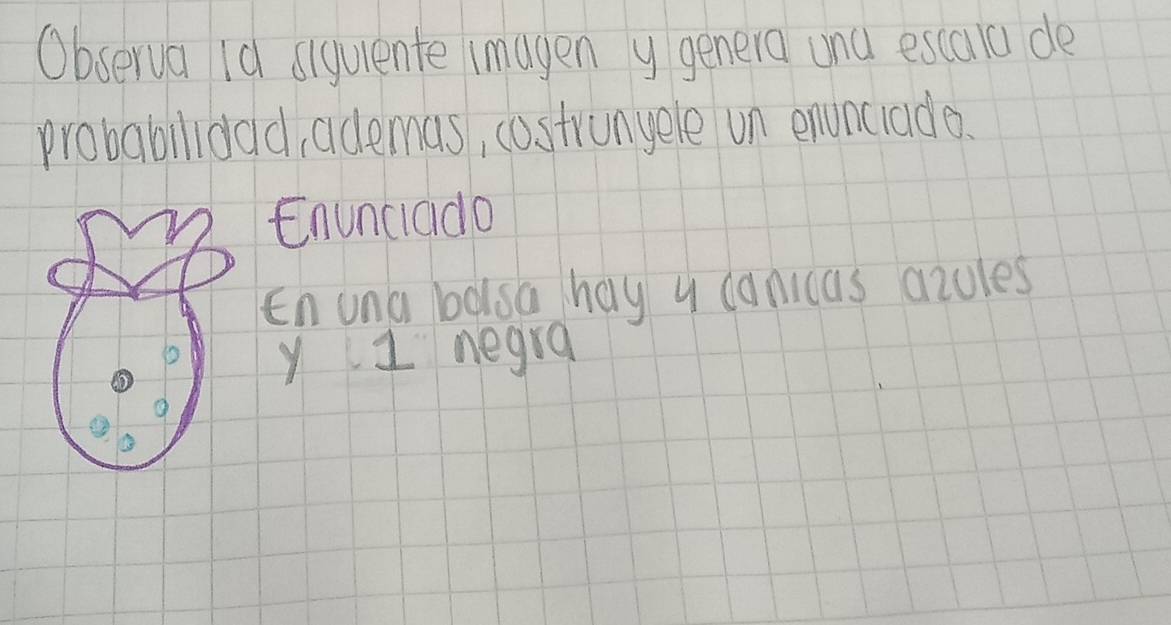 Observa la siguiente imagen y genera una escala de
probabilidad, ademas, costrunyele un enunciado.
Enunciado
En una bolsa hay 4 canicas azules
y 1 negra